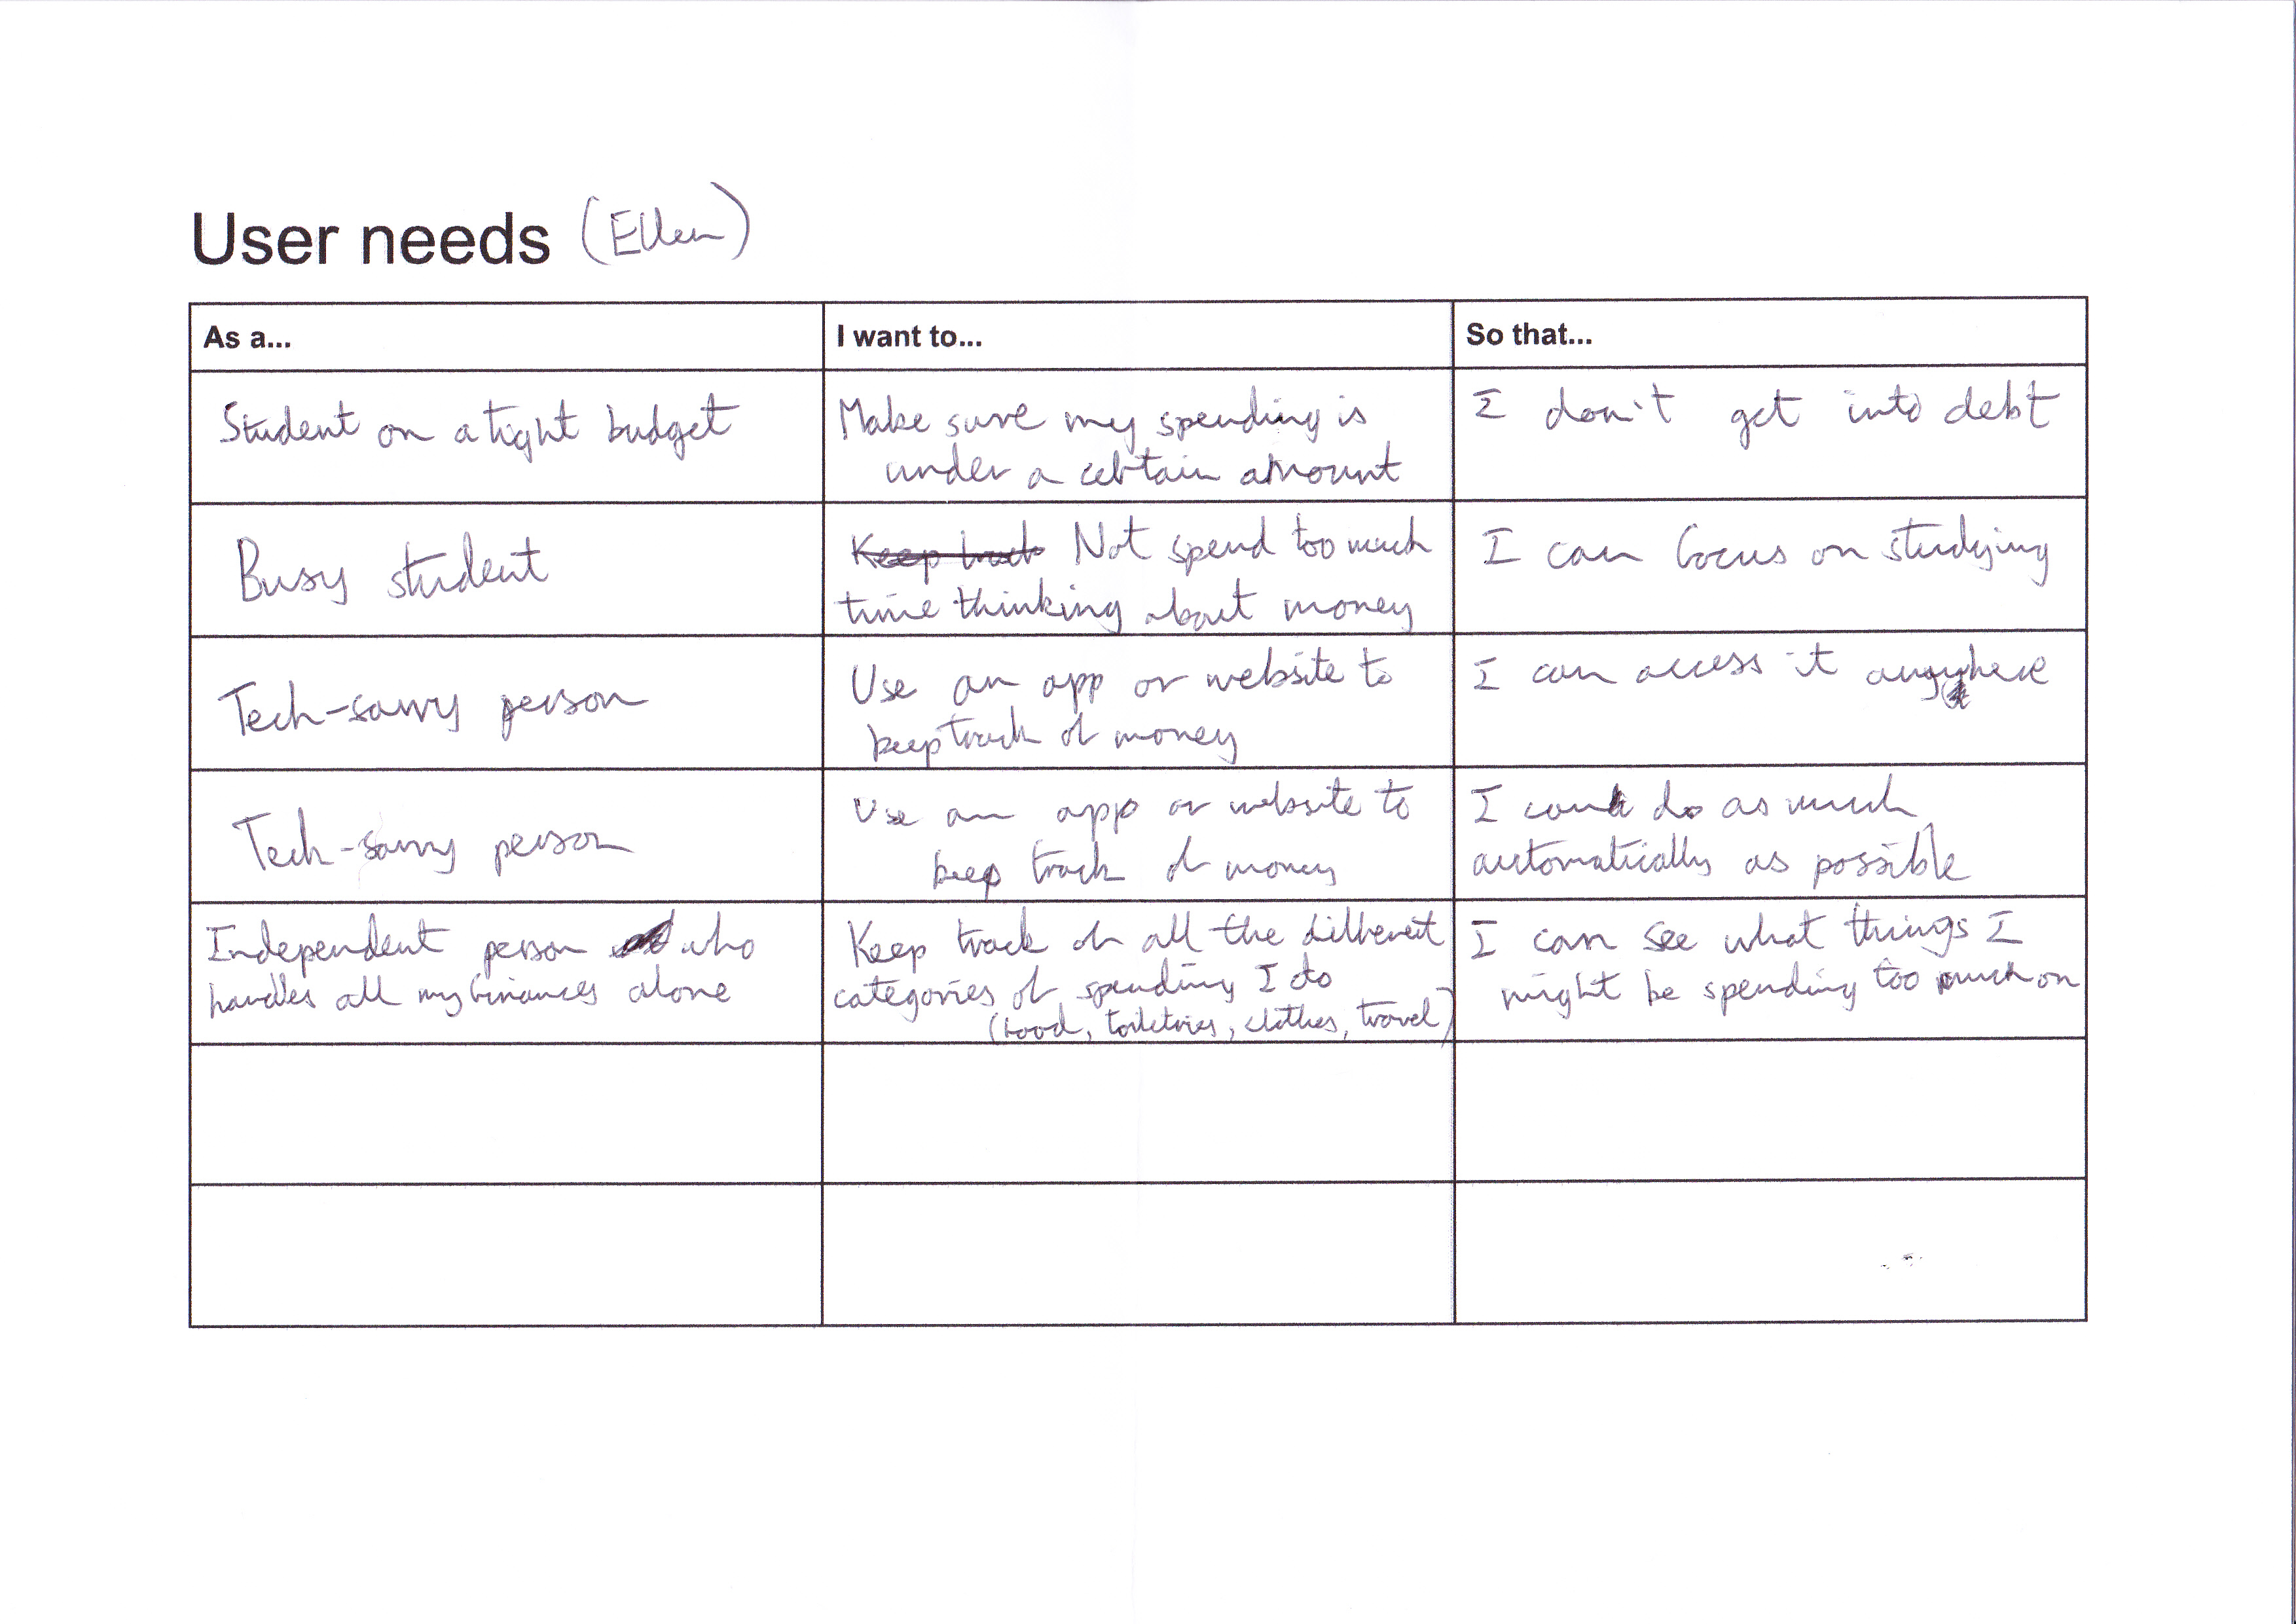 User needs (Ellen)
As a...
I want to...
So that...
Student on a tight budget
Make sure my spending is
under a certain amount
I don't get into debt
Busy student
Keep track Not spend too much
time thinking about money
I can focus on studying
Tech-savvy person
Use an app or website to
keep track of money
I can access it anywhere
Tech-savvy person
Use an app or website to
keep track of money
I can do as much
automatically as possible
Independent person who
handles all my finances alone
Keep track of all the different
categories of spending I do
(food, toiletries, clothes, travel)
I can see what things I
might be spending too much on